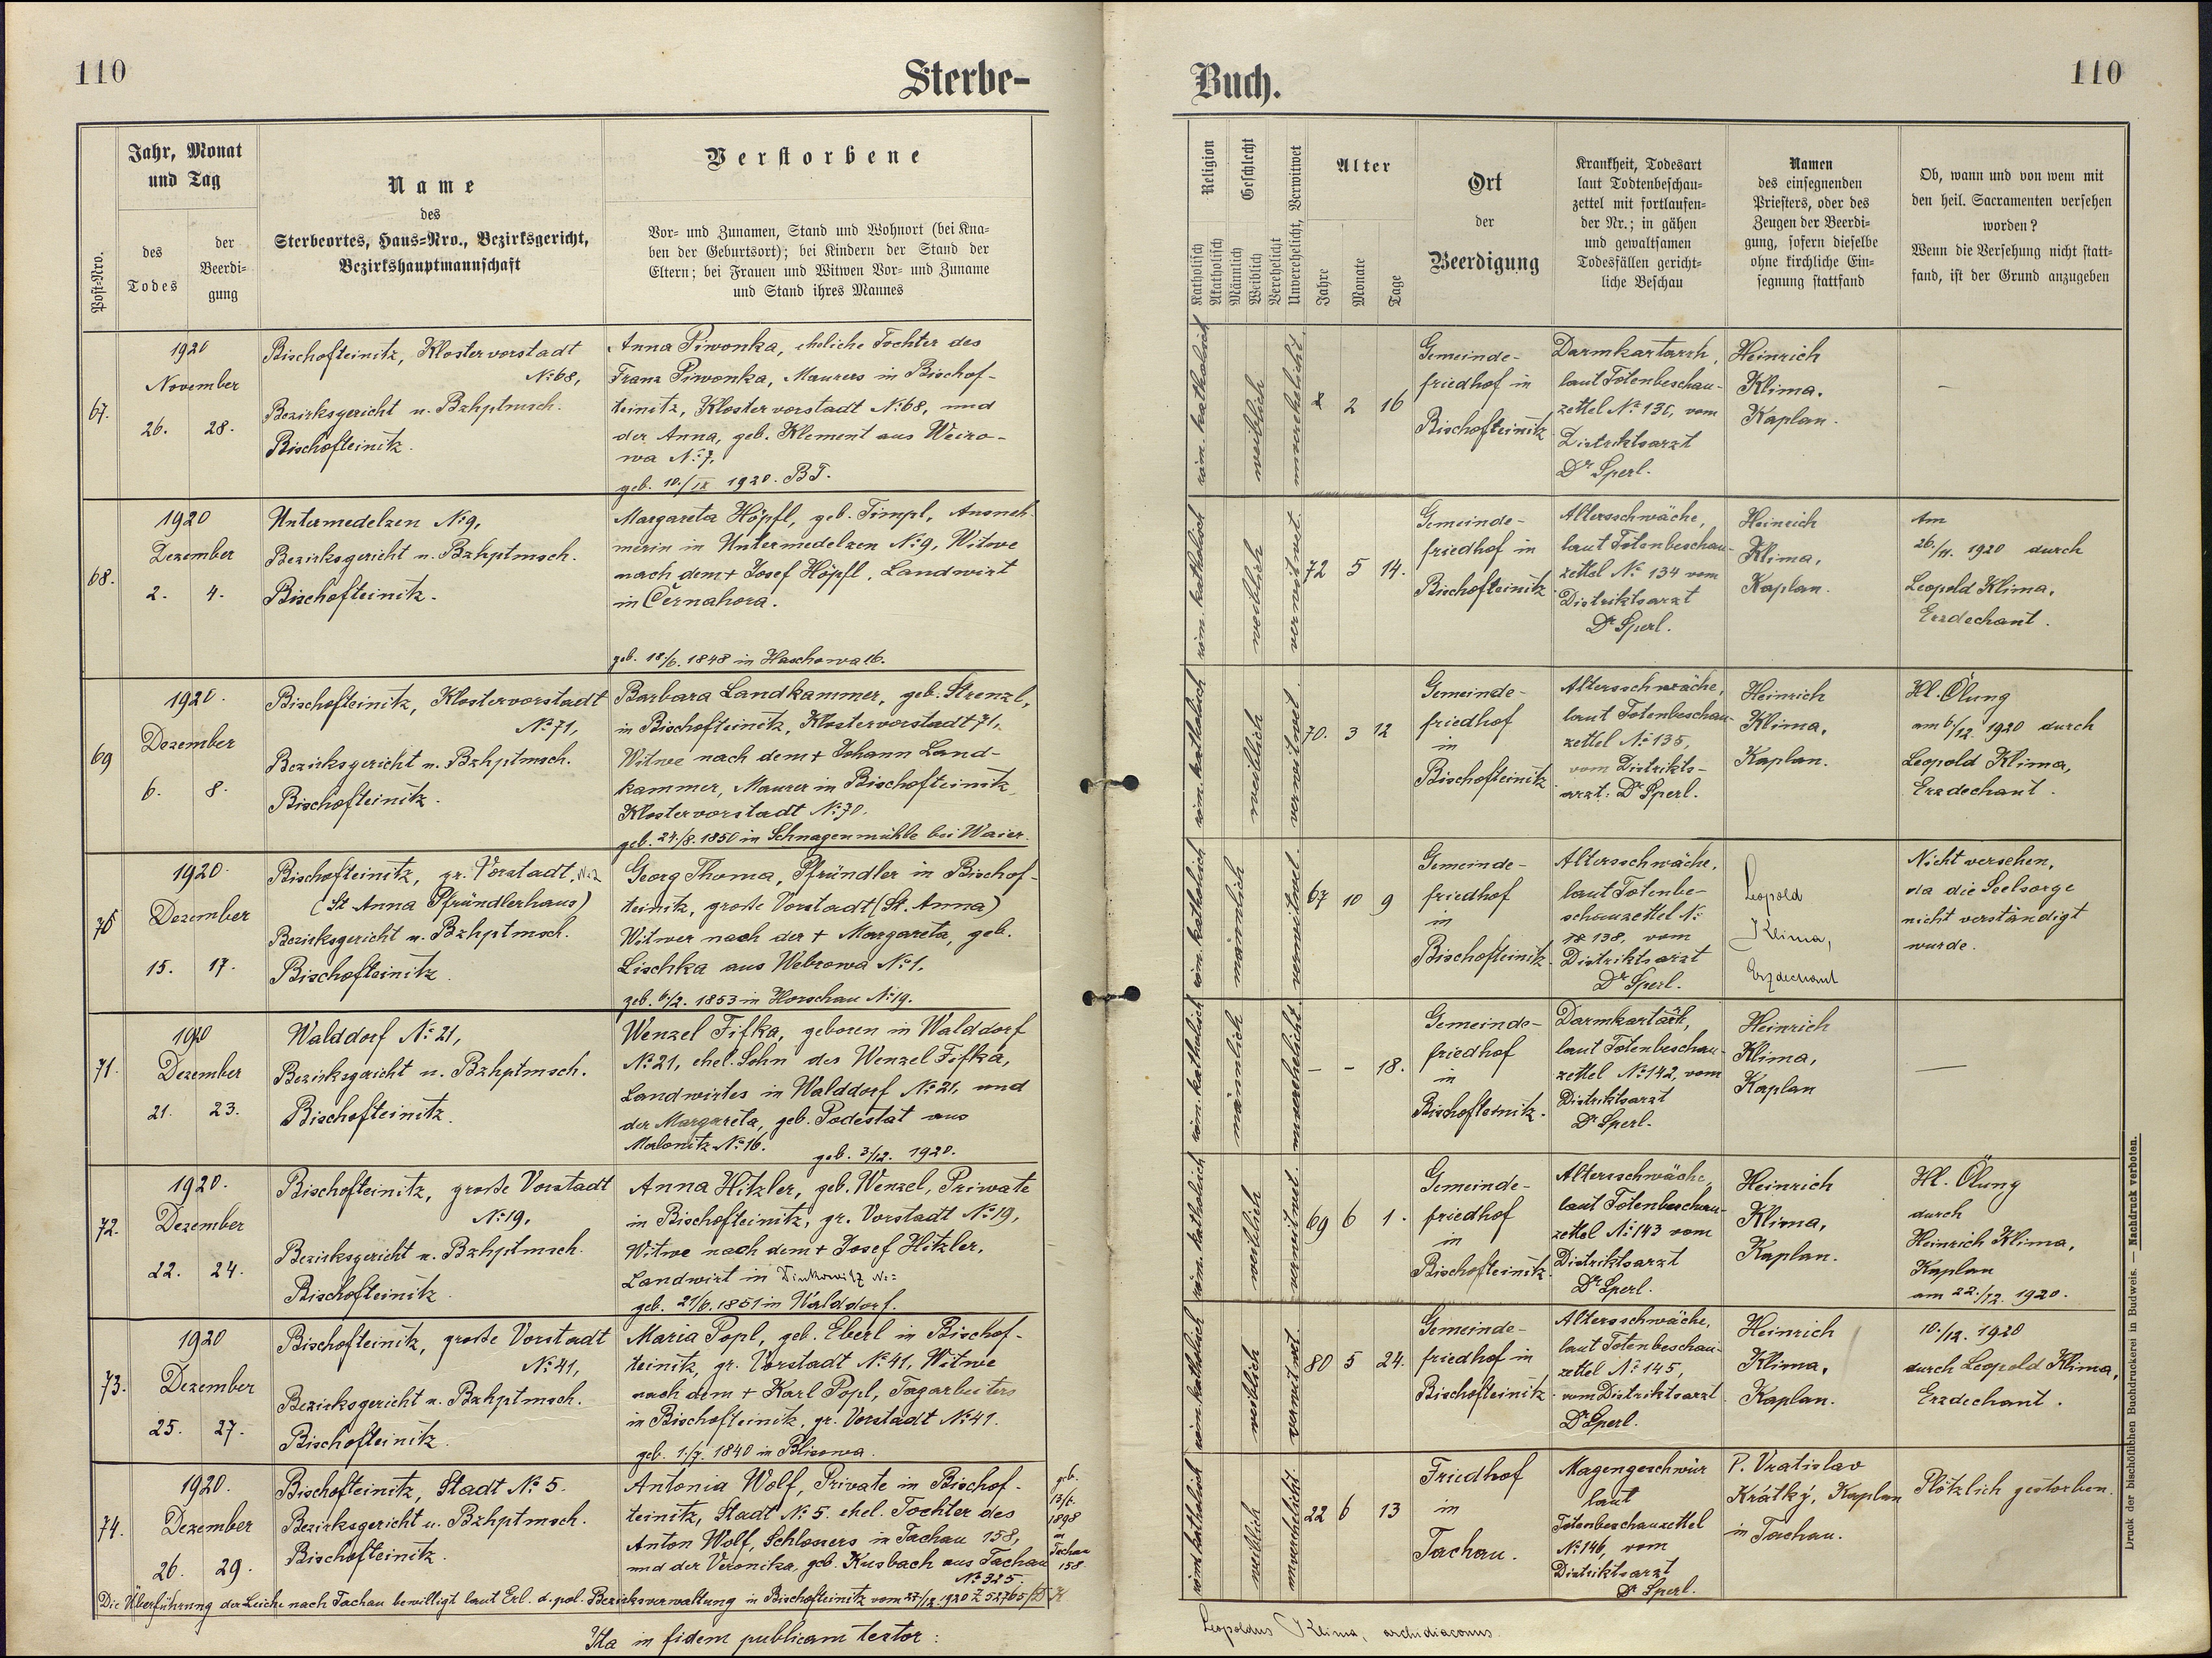 110
Sterbe-
Jahr, Monat
und Tag
Post-Nro.
des
Todes
der
Beerdi-
gung
Name
des
Sterbeortes, Haus-Nro., Bezirksgericht,
Bezirkshauptmannschaft
Verstorbene
Vor- und Zunamen, Stand und Wohnort (bei Kna-
ben der Geburtsort); bei Kindern der Stand der
Eltern; bei Frauen und Witwen Vor- und Zuname
und Stand ihres Mannes
67.
1920
November
26. 28.
Bischofteinitz, Klostervorstadt
No 68,
Bezirksgericht u. Bzhptmsch.
Bischofteinitz.
Anna Piwonka, eheliche Tochter des
Franz Piwonka, Maurers in Bischof-
teinitz, Klostervorstadt No 68, und
der Anna, geb. Klement aus Weiro-
wa No 7,
geb. 10./IX 1920. B.T.
68.
1920
Dezember
2. 4.
Untermedelzen No 9,
Bezirksgericht u. Bzhptmsch.
Bischofteinitz.
Margareta Höpfl, geb. Timpl, Ausneh-
merin in Untermedelzen No 9, Witwe
nach dem + Josef Höpfl, Landwirt
in Černahora.
geb. 18/6. 1848 in Haschowa 16.
69
1920.
Dezember
6. 8.
Bischofteinitz, Klostervorstadt
No 71,
Bezirksgericht u. Bzhptmsch.
Bischofteinitz.
Barbara Landkammer, geb. Strenzl,
in Bischofteinitz, Klostervorstadt 71,
Witwe nach dem + Johann Land-
kammer, Maurer in Bischofteinitz,
Klostervorstadt No 70.
geb. 24./8. 1850 in Schnagenmühle bei Waier.
70
1920.
Dezember
15. 17.
Bischofteinitz, gr. Vorstadt, No 2
(St. Anna Pfründlerhaus)
Bezirksgericht u. Bzhptmsch.
Bischofteinitz.
Georg Thoma, Pfründler in Bischof-
teinitz, große Vorstadt (St. Anna)
Witwer nach der + Margareta, geb.
Lischka aus Webrowa No 1.
geb. 6./2. 1853 in Horschau No 19.
71.
1920
Dezember
21. 23.
Walddorf No 21,
Bezirksgericht u. Bzhptmsch.
Bischofteinitz.
Wenzel Fifka, geboren in Walddorf
No 21, ehel. Sohn des Wenzel Fifka,
Landwirtes in Walddorf No 21, und
der Margareta, geb. Podestat aus
Malonitz No 16.
geb. 3/12. 1920.
72.
1920.
Dezember
22. 24.
Bischofteinitz, große Vorstadt
No 19,
Bezirksgericht u. Bzhptmsch.
Bischofteinitz.
Anna Hitzler, geb. Wenzel, Private
in Bischofteinitz, gr. Vorstadt No 19,
Witwe nach dem + Josef Hitzler,
Landwirt in Dinkowitz No
geb. 21/6. 1851 in Walddorf.
73.
1920
Dezember
25. 27.
Bischofteinitz, große Vorstadt
No 41,
Bezirksgericht u. Bzhptmsch.
Bischofteinitz.
Maria Popl, geb. Eberl in Bischof-
teinitz, gr. Vorstadt No 41, Witwe
nach dem + Karl Popl, Tagarbeiters
in Bischofteinitz, gr. Vorstadt No 41.
geb. 1./7. 1840 in Blisowa.
74.
1920.
Dezember
26. 29.
Bischofteinitz, Stadt No 5.
Bezirksgericht u. Bzhptmsch.
Bischofteinitz.
Antonia Wolf, Private in Bischof-
teinitz, Stadt No 5. ehel. Tochter des
Anton Wolf, Schlossers in Tachau 158,
und der Veronika, geb. Kusbach aus Tachau
No 325.
geb.
13/6.
1898
in
Tachau
158
Die Überführung der Leiche nach Tachau bewilligt laut Erl. d. pol. Bezirksverwaltung in Bischofteinitz vom 27/12. 1920 Z 52765
Ita in fidem publicam testor:
Buch.
110
Religion
Katholisch
Akatholisch
Geschlecht
Männlich
Weiblich
Verehelicht
Unverehelicht, Verwitwet
Alter
Jahre
Monate
Tage
Ort
der
Beerdigung
Krankheit, Todesart
laut Todtenbeschau-
zettel mit fortlaufen-
der Nr.; in gähen
und gewaltsamen
Todesfällen gericht-
liche Beschau
Namen
des einsegnenden
Priesters, oder des
Zeugen der Beerdi-
gung, sofern dieselbe
ohne kirchliche Ein-
segnung stattfand
Ob, wann und von wem mit
den heil. Sacramenten versehen
worden?
Wenn die Versehung nicht statt-
fand, ist der Grund anzugeben
röm. katholisch
weiblich
unverehelicht.
2 16
Gemeinde-
friedhof in
Bischofteinitz
Darmkartarrh,
laut Totenbeschau-
zettel No 130, vom
Distriktsarzt
Dr Sperl.
Heinrich
Klima,
Kaplan.
—
röm. katholisch
weiblich
verwitwet.
72 5 14.
Gemeinde-
friedhof in
Bischofteinitz.
Altersschwäche,
laut Totenbeschau-
zettel No 134 vom
Distriktsarzt
Dr Sperl.
Heinrich
Klima,
Kaplan.
Am
26./11. 1920 durch
Leopold Klima,
Erzdechant.
röm. katholisch
weiblich
verwitwet.
70. 3 12
Gemeinde-
friedhof
in
Bischofteinitz
Altersschwäche,
laut Totenbeschau-
zettel No 135,
vom Distrikts-
arzt: Dr Sperl.
Heinrich
Klima,
Kaplan.
Hl. Ölung
am 6/12. 1920 durch
Leopold Klima,
Erzdechant.
röm. katholisch
männlich
verwitwet.
67 10 9
Gemeinde-
friedhof
in
Bischofteinitz.
Altersschwäche,
laut Totenbe-
schauzettel No
138, vom
Distriktsarzt
Dr Sperl.
Leopold
Klima,
Erzdechant
Nicht versehen,
da die Seelsorge
nicht verständigt
wurde.
röm. katholisch
männlich
unverehelicht.
– – 18.
Gemeinde-
friedhof
in
Bischofteinitz.
Darmkartarh,
laut Totenbeschau-
zettel No 142, vom
Distriktsarzt
Dr Sperl.
Heinrich
Klima,
Kaplan
—
röm. katholisch
weiblich
verwitwet.
69 6 1.
Gemeinde-
friedhof
in
Bischofteinitz.
Altersschwäche,
laut Totenbeschau-
zettel No 143 vom
Distriktsarzt
Dr Sperl.
Heinrich
Klima,
Kaplan.
Hl. Ölung
durch
Heinrich Klima,
Kaplan
am 22./12. 1920.
röm. katholisch
weiblich
verwitwet.
80 5 24.
Gemeinde-
friedhof in
Bischofteinitz
Altersschwäche,
laut Totenbeschau-
zettel No 145,
vom Distriktsarzt
Dr Sperl.
Heinrich
Klima,
Kaplan.
10./12. 1920
durch Leopold Klima,
Erzdechant.
röm. katholisch
weiblich
unverehelicht.
22 6 13
Friedhof
in
Tachau.
Magengeschwür
laut
Totenbeschauzettel
No 146, vom
Distriktsarzt
Dr Sperl.
P. Vratislav
Krátký, Kaplan
in Tachau.
Plötzlich gestorben.
Leopoldus Klima, archidiaconus.
Druck der bischöflichen Buchdruckerei in Budweis. — Nachdruck verboten.